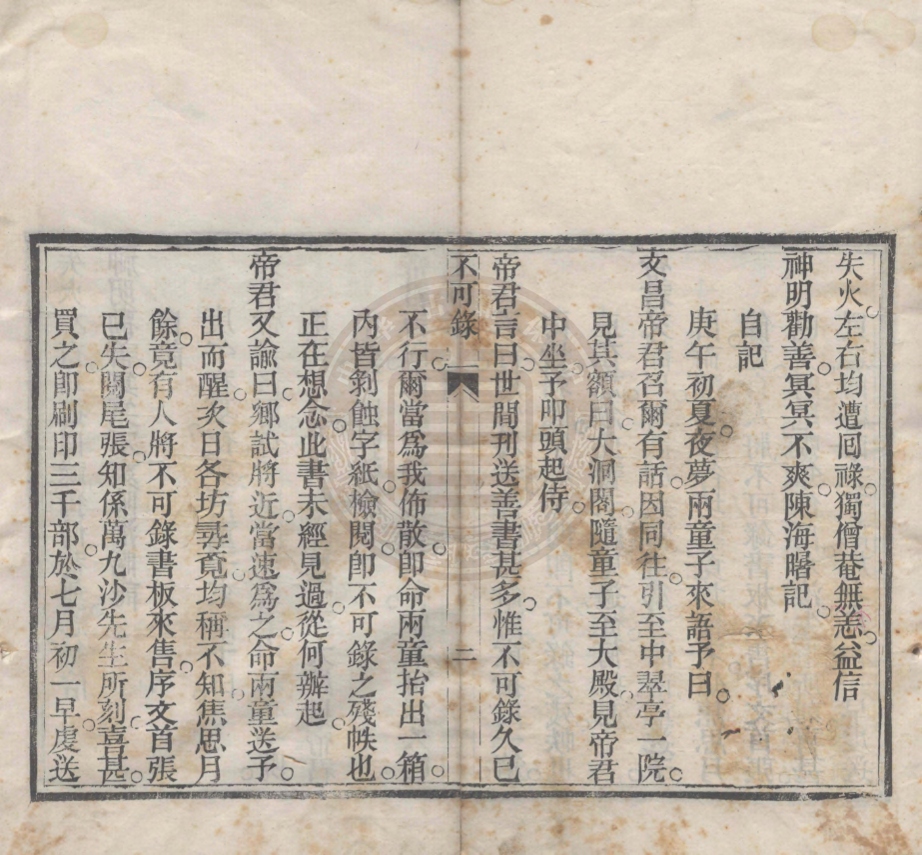 失火左右均遭回祿獨僧菴無恙益信
神明勸善冥冥不爽陳海曙記
自記
庚午初夏夜夢兩童子來語予曰
文昌帝君召爾有話因同往引至中翠亭一院
見其額曰大洞閣隨童子至大殿見帝君
中坐予叩頭起侍
帝君言曰世間刊送善書甚多惟不可錄久已
不可錄 二
不行爾當為我佈散即命兩童抬出一箱
內皆剝蝕字紙檢閱即不可錄之殘帙也
正在想念此書未經見過從何辦起
帝君又諭曰鄉試將近當速為之命兩童送予
出而醒次日各坊尋覓均稱不知焦思月
餘竟有人將不可錄書板來售序文首張
已失闗尾張知係萬九沙先生所刻喜甚
買之即刷印三千部於七月初一早虔送